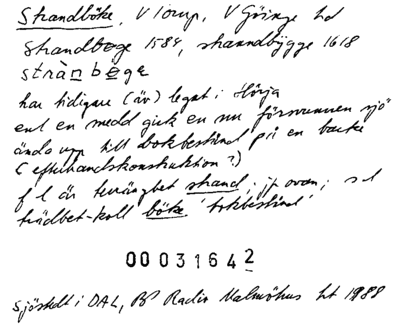 Strandböke, V Torup, V Göinge hd
Strandbøge 1584, stranndbygge 1618
strànbøge
har tidigare (äv) legat i Hörja
enl en medd gick en nu försvunnen sjö
ända upp till bokbestånd på en backe
(efterhandskonstruktion?)
f l är terrängbet strand, jf ovan; s l
trädbet-koll böke 'bokbestånd'
00031642
i DAL, BP Radio Malmöhus ht 1988